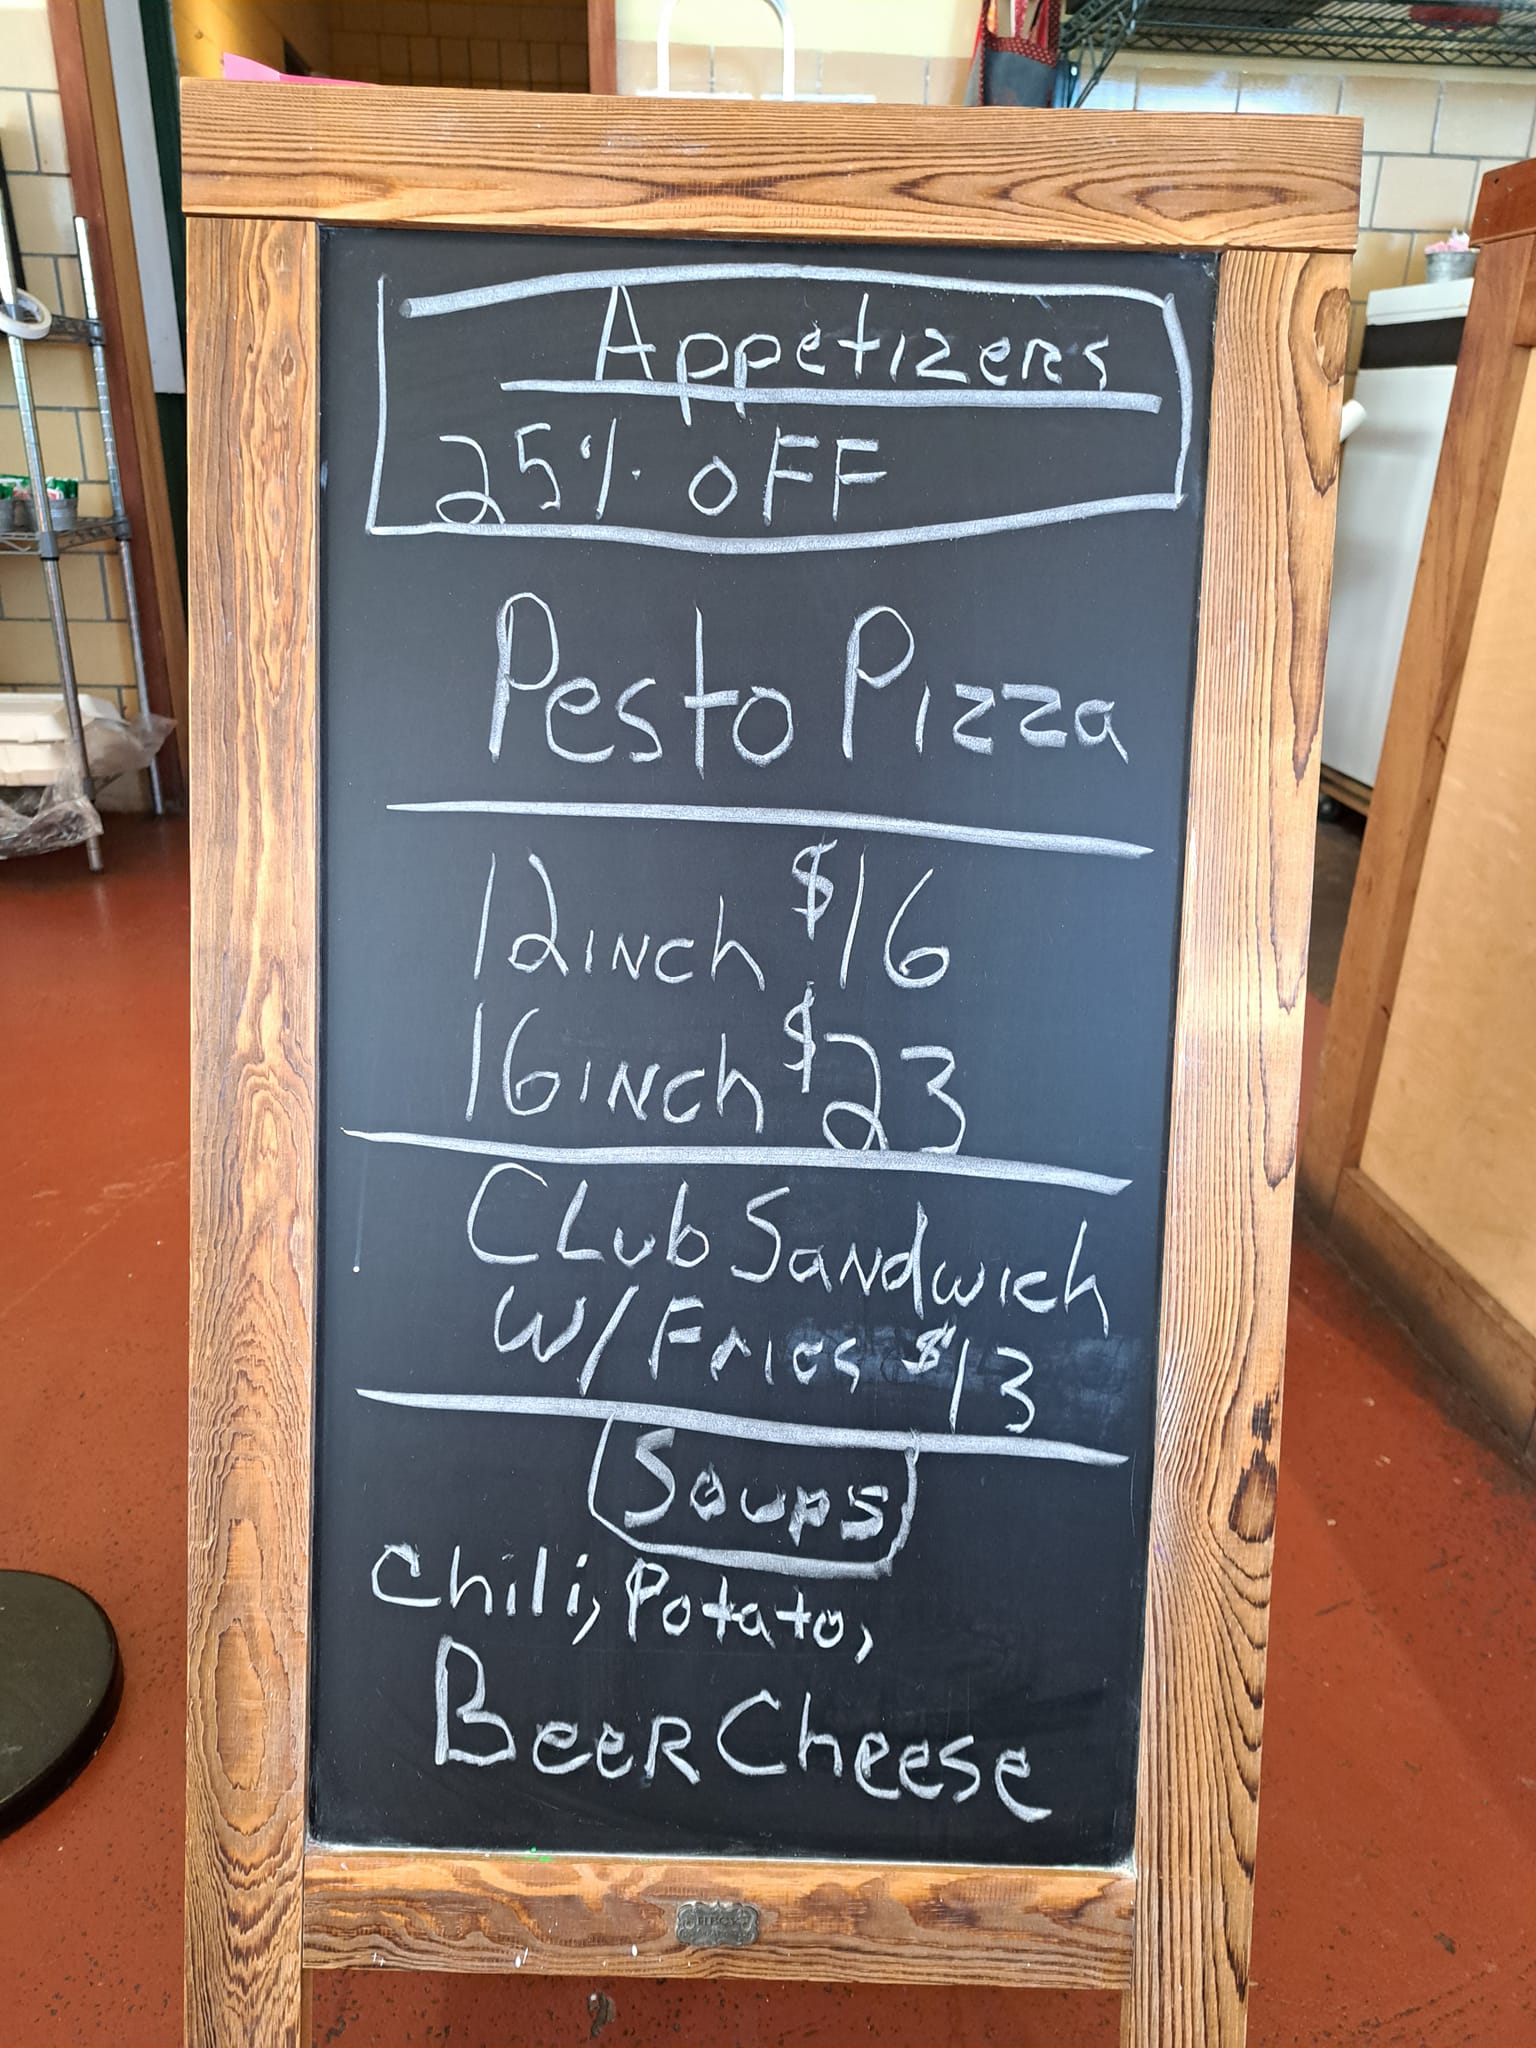 Appetizers
25% OFF
Pesto Pizza
12 inch $16
16 inch $23
Club Sandwich
W/ Fries $13
Soups
Chili, Potato,
Beer Cheese